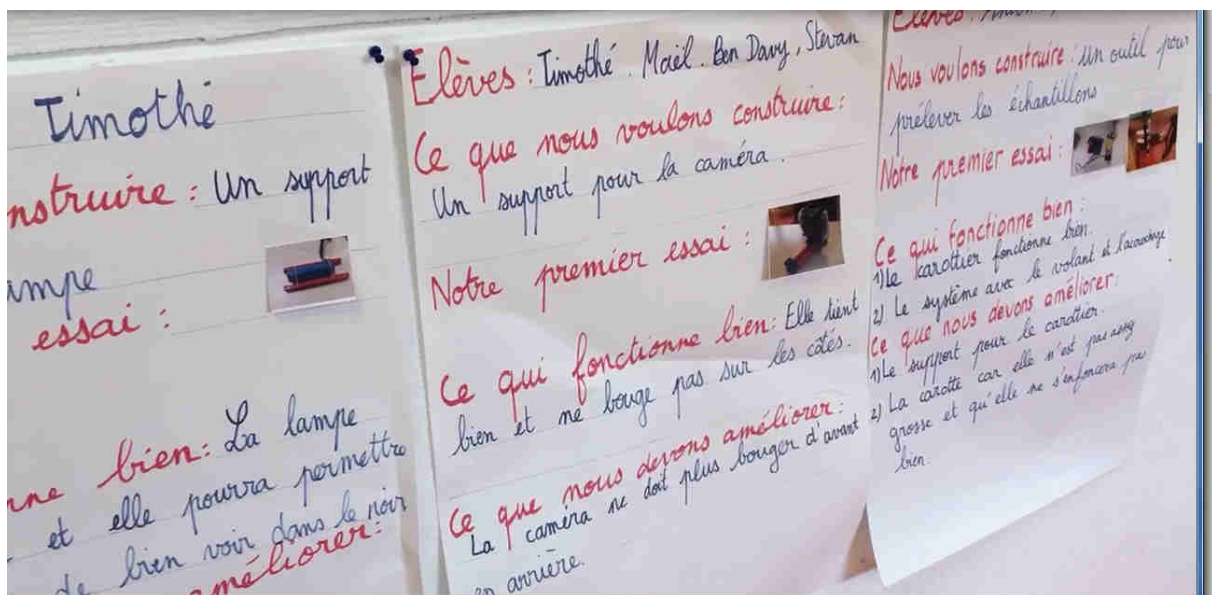 Timothé
nstruire : Un support
mpe
essai :
ne bien : La lampe
et elle pourra permettre
de bien voir dans le noir
améliorer :
Elèves : Timothé. Maël. Ben Davy, Stevan
Ce que nous voulons construire :
Un support pour la caméra.
Notre premier essai :
Ce qui fonctionne bien : Elle tient
bien et ne bouge pas sur les côtés.
Ce que nous devons améliorer :
La caméra ne doit plus bouger d'avant
en arrière.
Elèves :
Nous voulons construire : un outil pour
prélever les échantillons
Notre premier essai :
Ce qui fonctionne bien :
1) Le carottier fonctionne bien.
2) Le système avec le volant et l'accrochage
Ce que nous devons améliorer :
1) Le support pour le carottier.
2) La carotte car elle n'est pas assez
grosse et qu'elle ne s'enfoncera pas
bien.